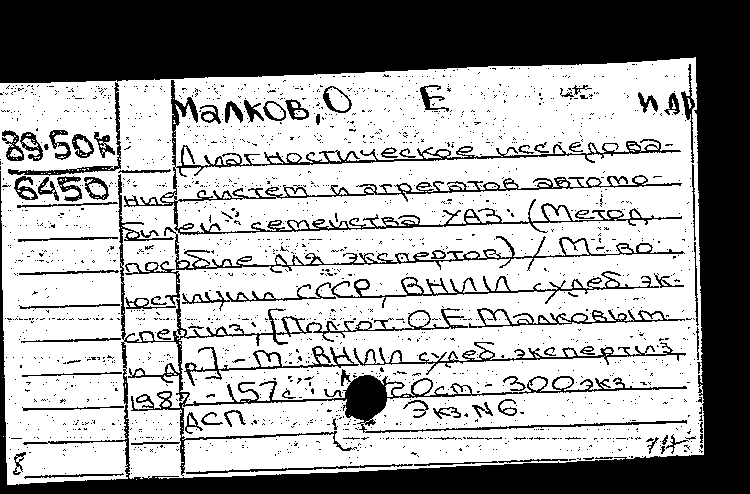 Малков, О Е и др
89-50к
6450
Диагностическое исследова-
ние систем и агрегатов автомо-
билей семейства УАЗ: (Метод.
пособие для экспертов) / М-во
юстиции СССР, ВНИИ судеб. эк-
спертиз; [Подгот. О.Е. Малковым
и др]. - М.: ВНИИ судеб. экспертиз,
1987. - 157с 20см. - 300экз. -
ДСП. Экз. N6.
8